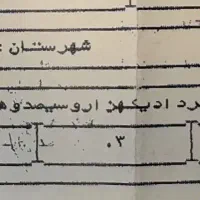 شهرستان:
رد ادیکهزاروسیصدوه
۰۳